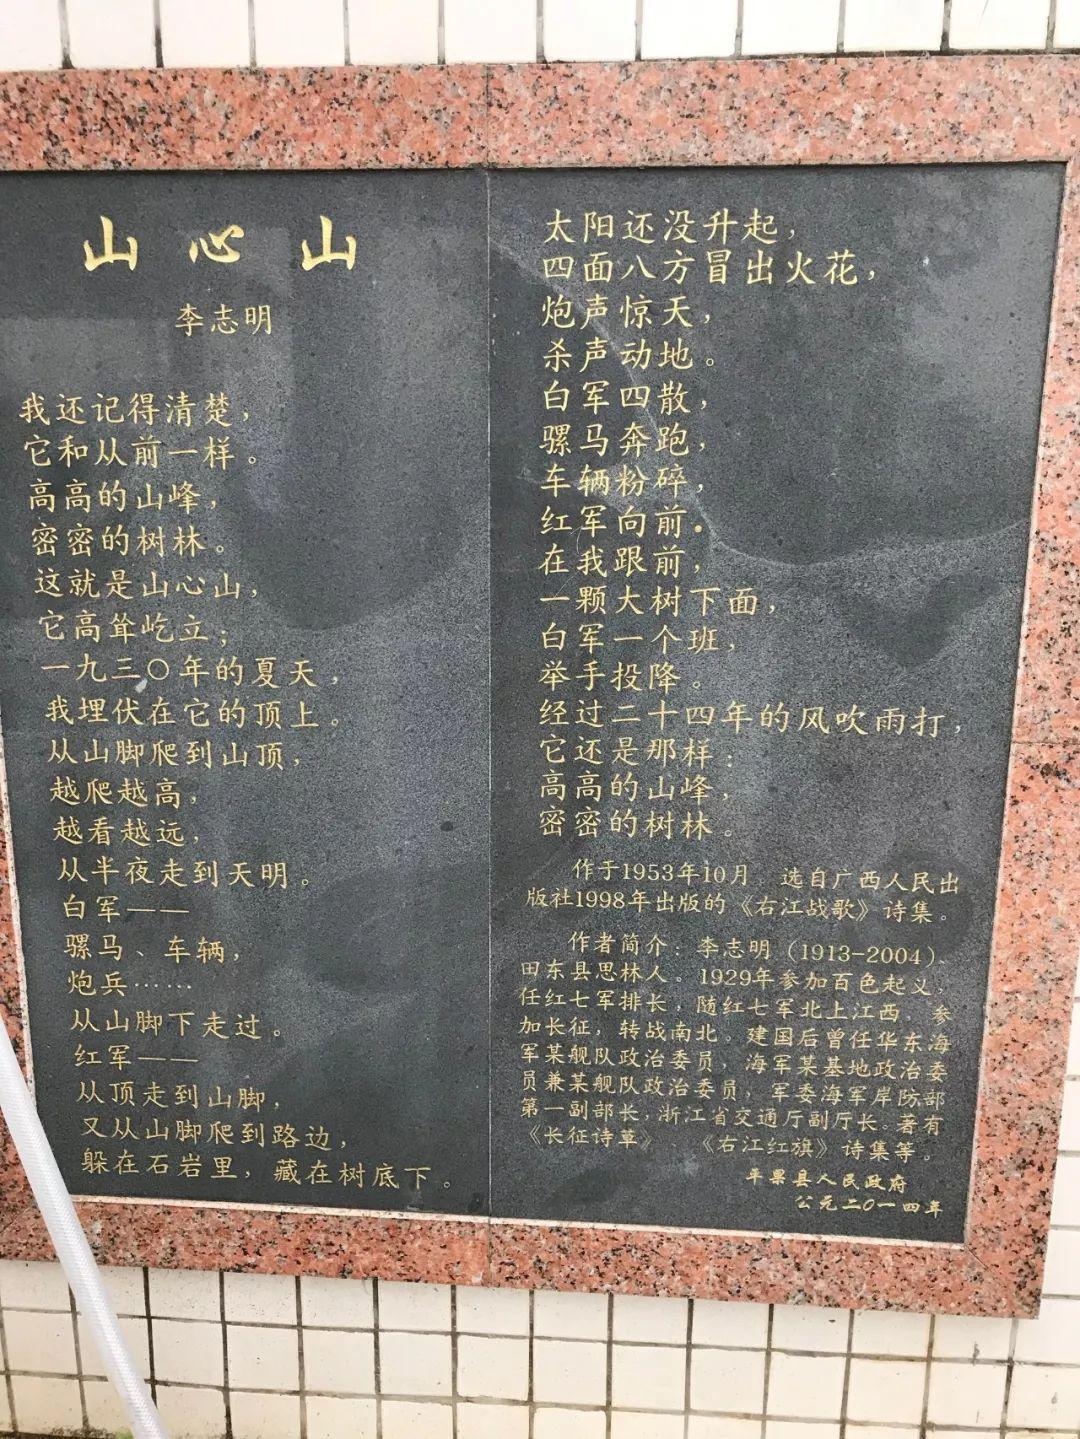 山心山
李志明
我还记得清楚，
它和从前一样。
高高的山峰，
密密的树林。
这就是山心山，
它高耸屹立；
一九三〇年的夏天，
我埋伏在它的顶上。
从山脚爬到山顶，
越爬越高，
越看越远，
从半夜走到天明。
白军——
骡马、车辆，
炮兵……
从山脚下走过。
红军——
从顶走到山脚，
又从山脚爬到路边，
躲在石岩里，藏在树底下。
太阳还没升起，
四面八方冒出火花，
炮声惊天，
杀声动地。
白军四散，
骡马奔跑，
车辆粉碎，
红军向前。
在我跟前，
一颗大树下面，
白军一个班，
举手投降。
经过二十四年的风吹雨打，
它还是那样：
高高的山峰，
密密的树林。
作于1953年10月 选自广西人民出
版社1998年出版的《右江战歌》诗集。
作者简介：李志明（1913-2004）、
田东县思林人。1929年参加百色起义，
任红七军排长，随红七军北上江西，参
加长征，转战南北。建国后曾任华东海
军某舰队政治委员，海军某基地政治委
员兼某舰队政治委员，军委海军岸防部
第一副部长，浙江省交通厅副厅长。著有
《长征诗草》、《右江红旗》诗集等。
平果县人民政府
公元二〇一四年